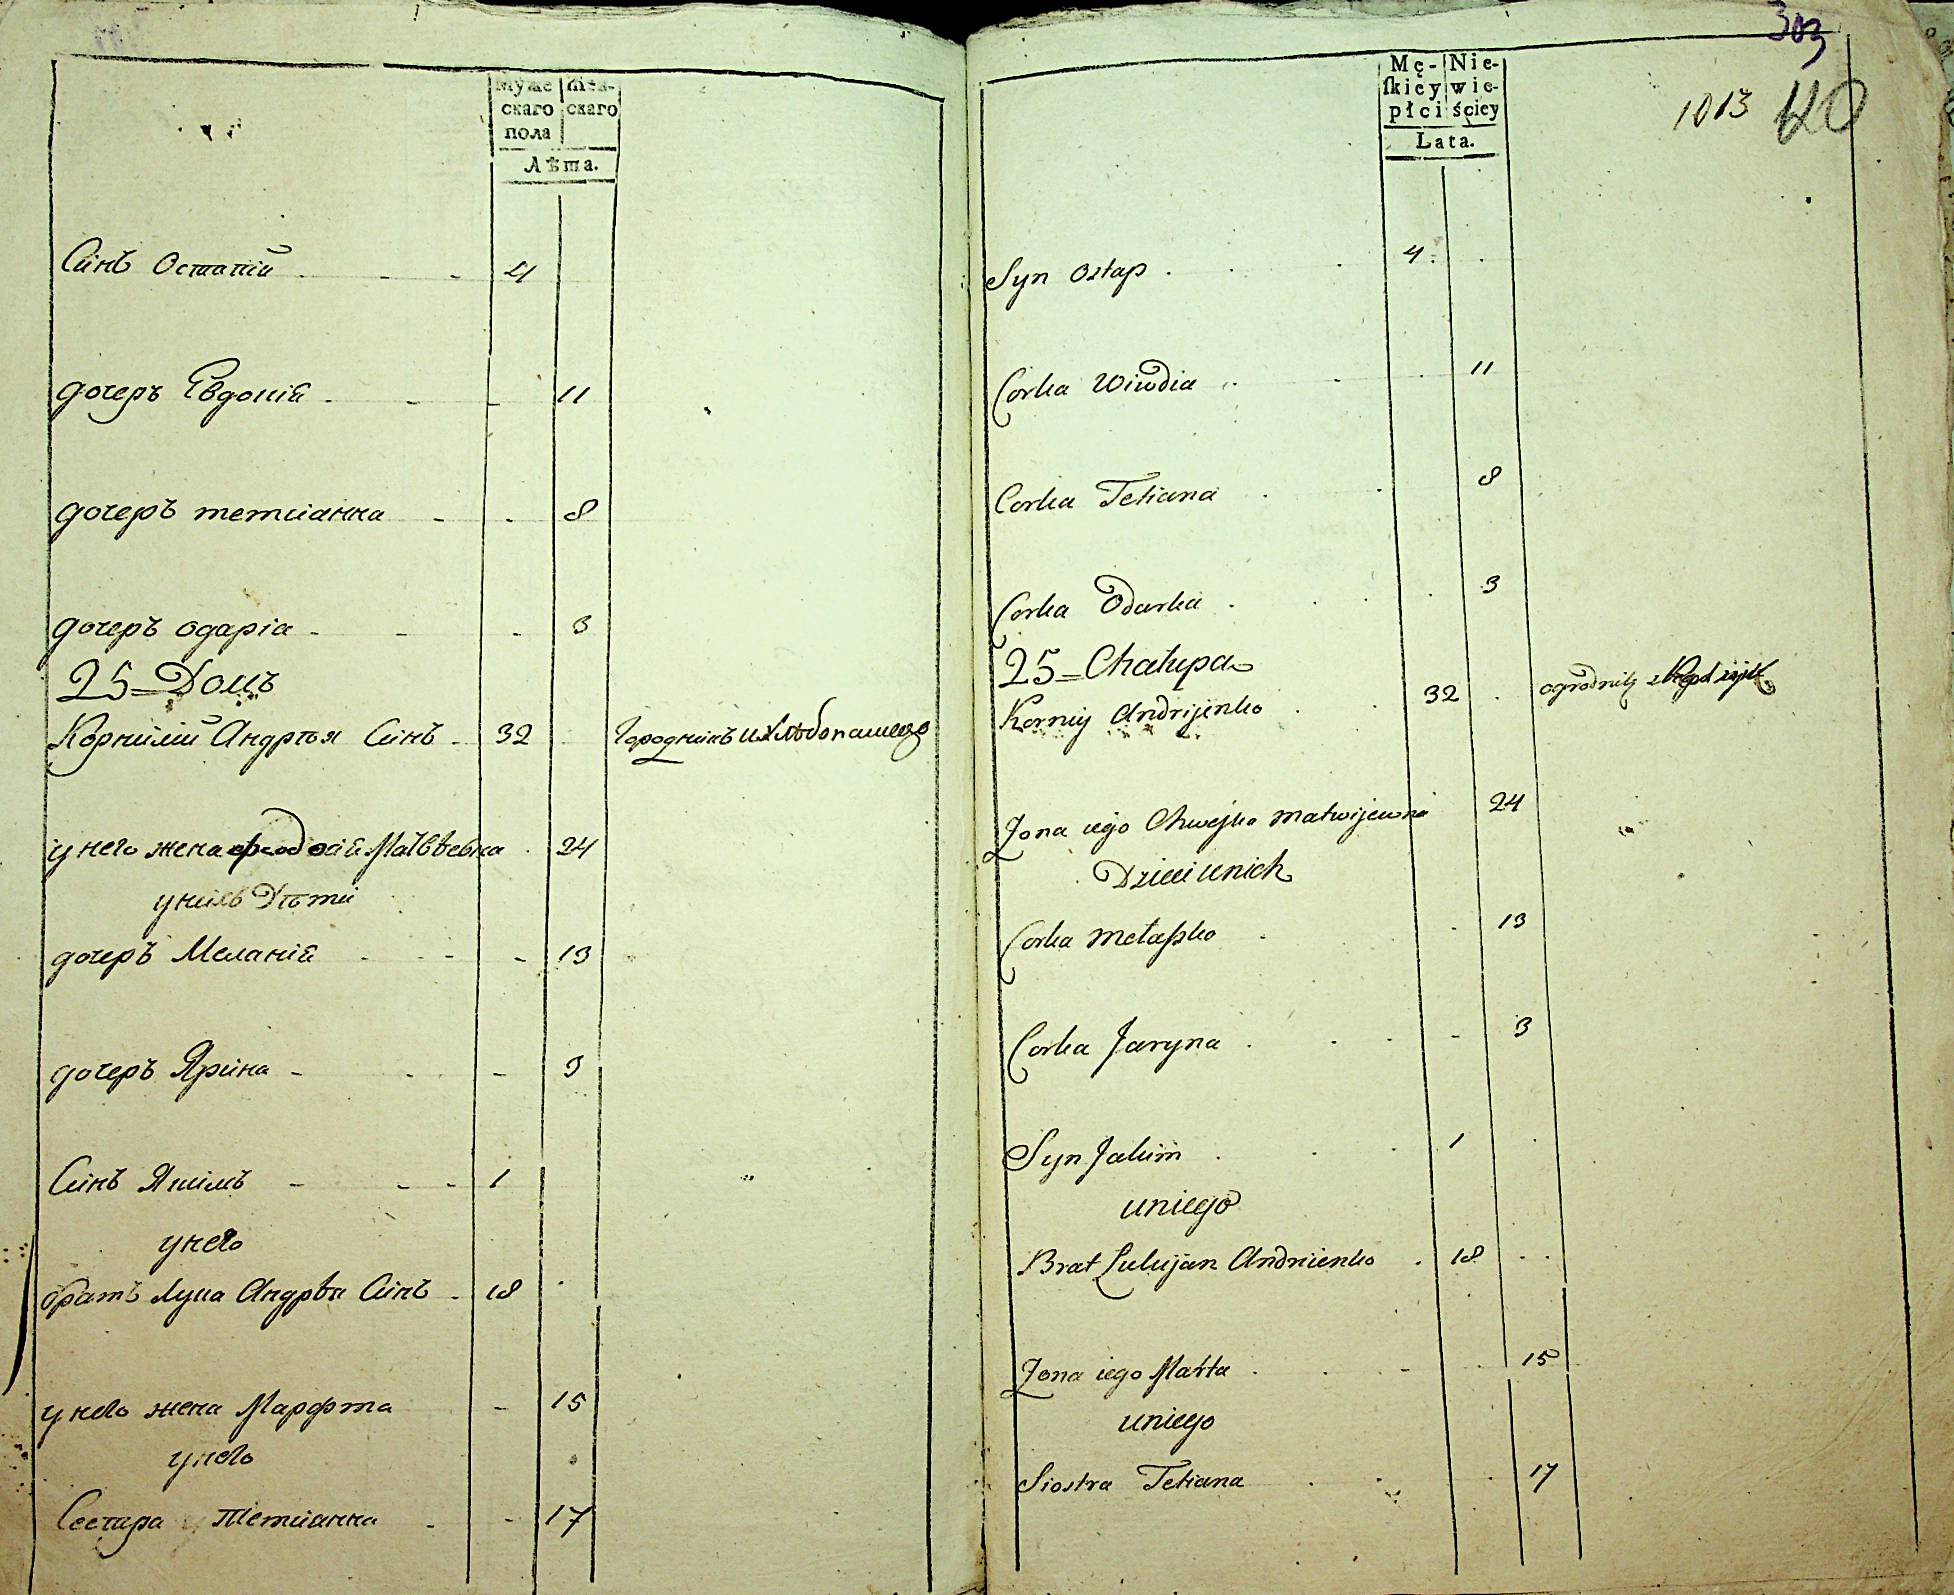 Муже
скаго
пола
скаго
Лѣта.
Синъ Остапій 4
дочеръ Евдокій 11
дочеръ тетианна 8
дочеръ одаріа 3
25=Домъ
Корнилій Андрѣя Синъ 32 Городникъ и хлѣбопашецъ
у него жена Матвѣевна 24
у нихъ Дѣти
дочеръ Меланій 13
дочеръ Ярина 3
Синъ Якимъ 1
у него
братъ Лука Андрѣя Синъ 18
у него жена Марфта 15
у него
Сестра Тетианна 17
303
1013 40
Mę-
ſkiey
płci
Nie-
wie-
ściey
Lata.
Syn Ostap 4
Corka Wiwdia 11
Corka Tetiana 8
Corka Odarka 3
25=Chałupa
Korniy Andrijenko 32 ogrodnik
Zona iego Chwejka Matwijewna 24
Dzieci unich
Corka Metaszka 13
Corka Jaryna 3
Syn Jakim 1
uniego
Brat Lukijan Andrienko 18
Zona iego Marta 15
uniego
Siostra Tetiana 17